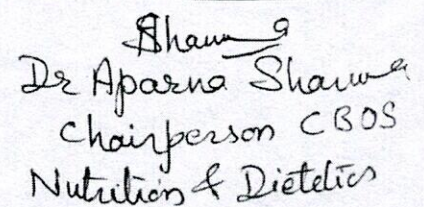 Sharma
Dr Aparna Sharma
Chairperson CBOS
Nutrition & Dietetics